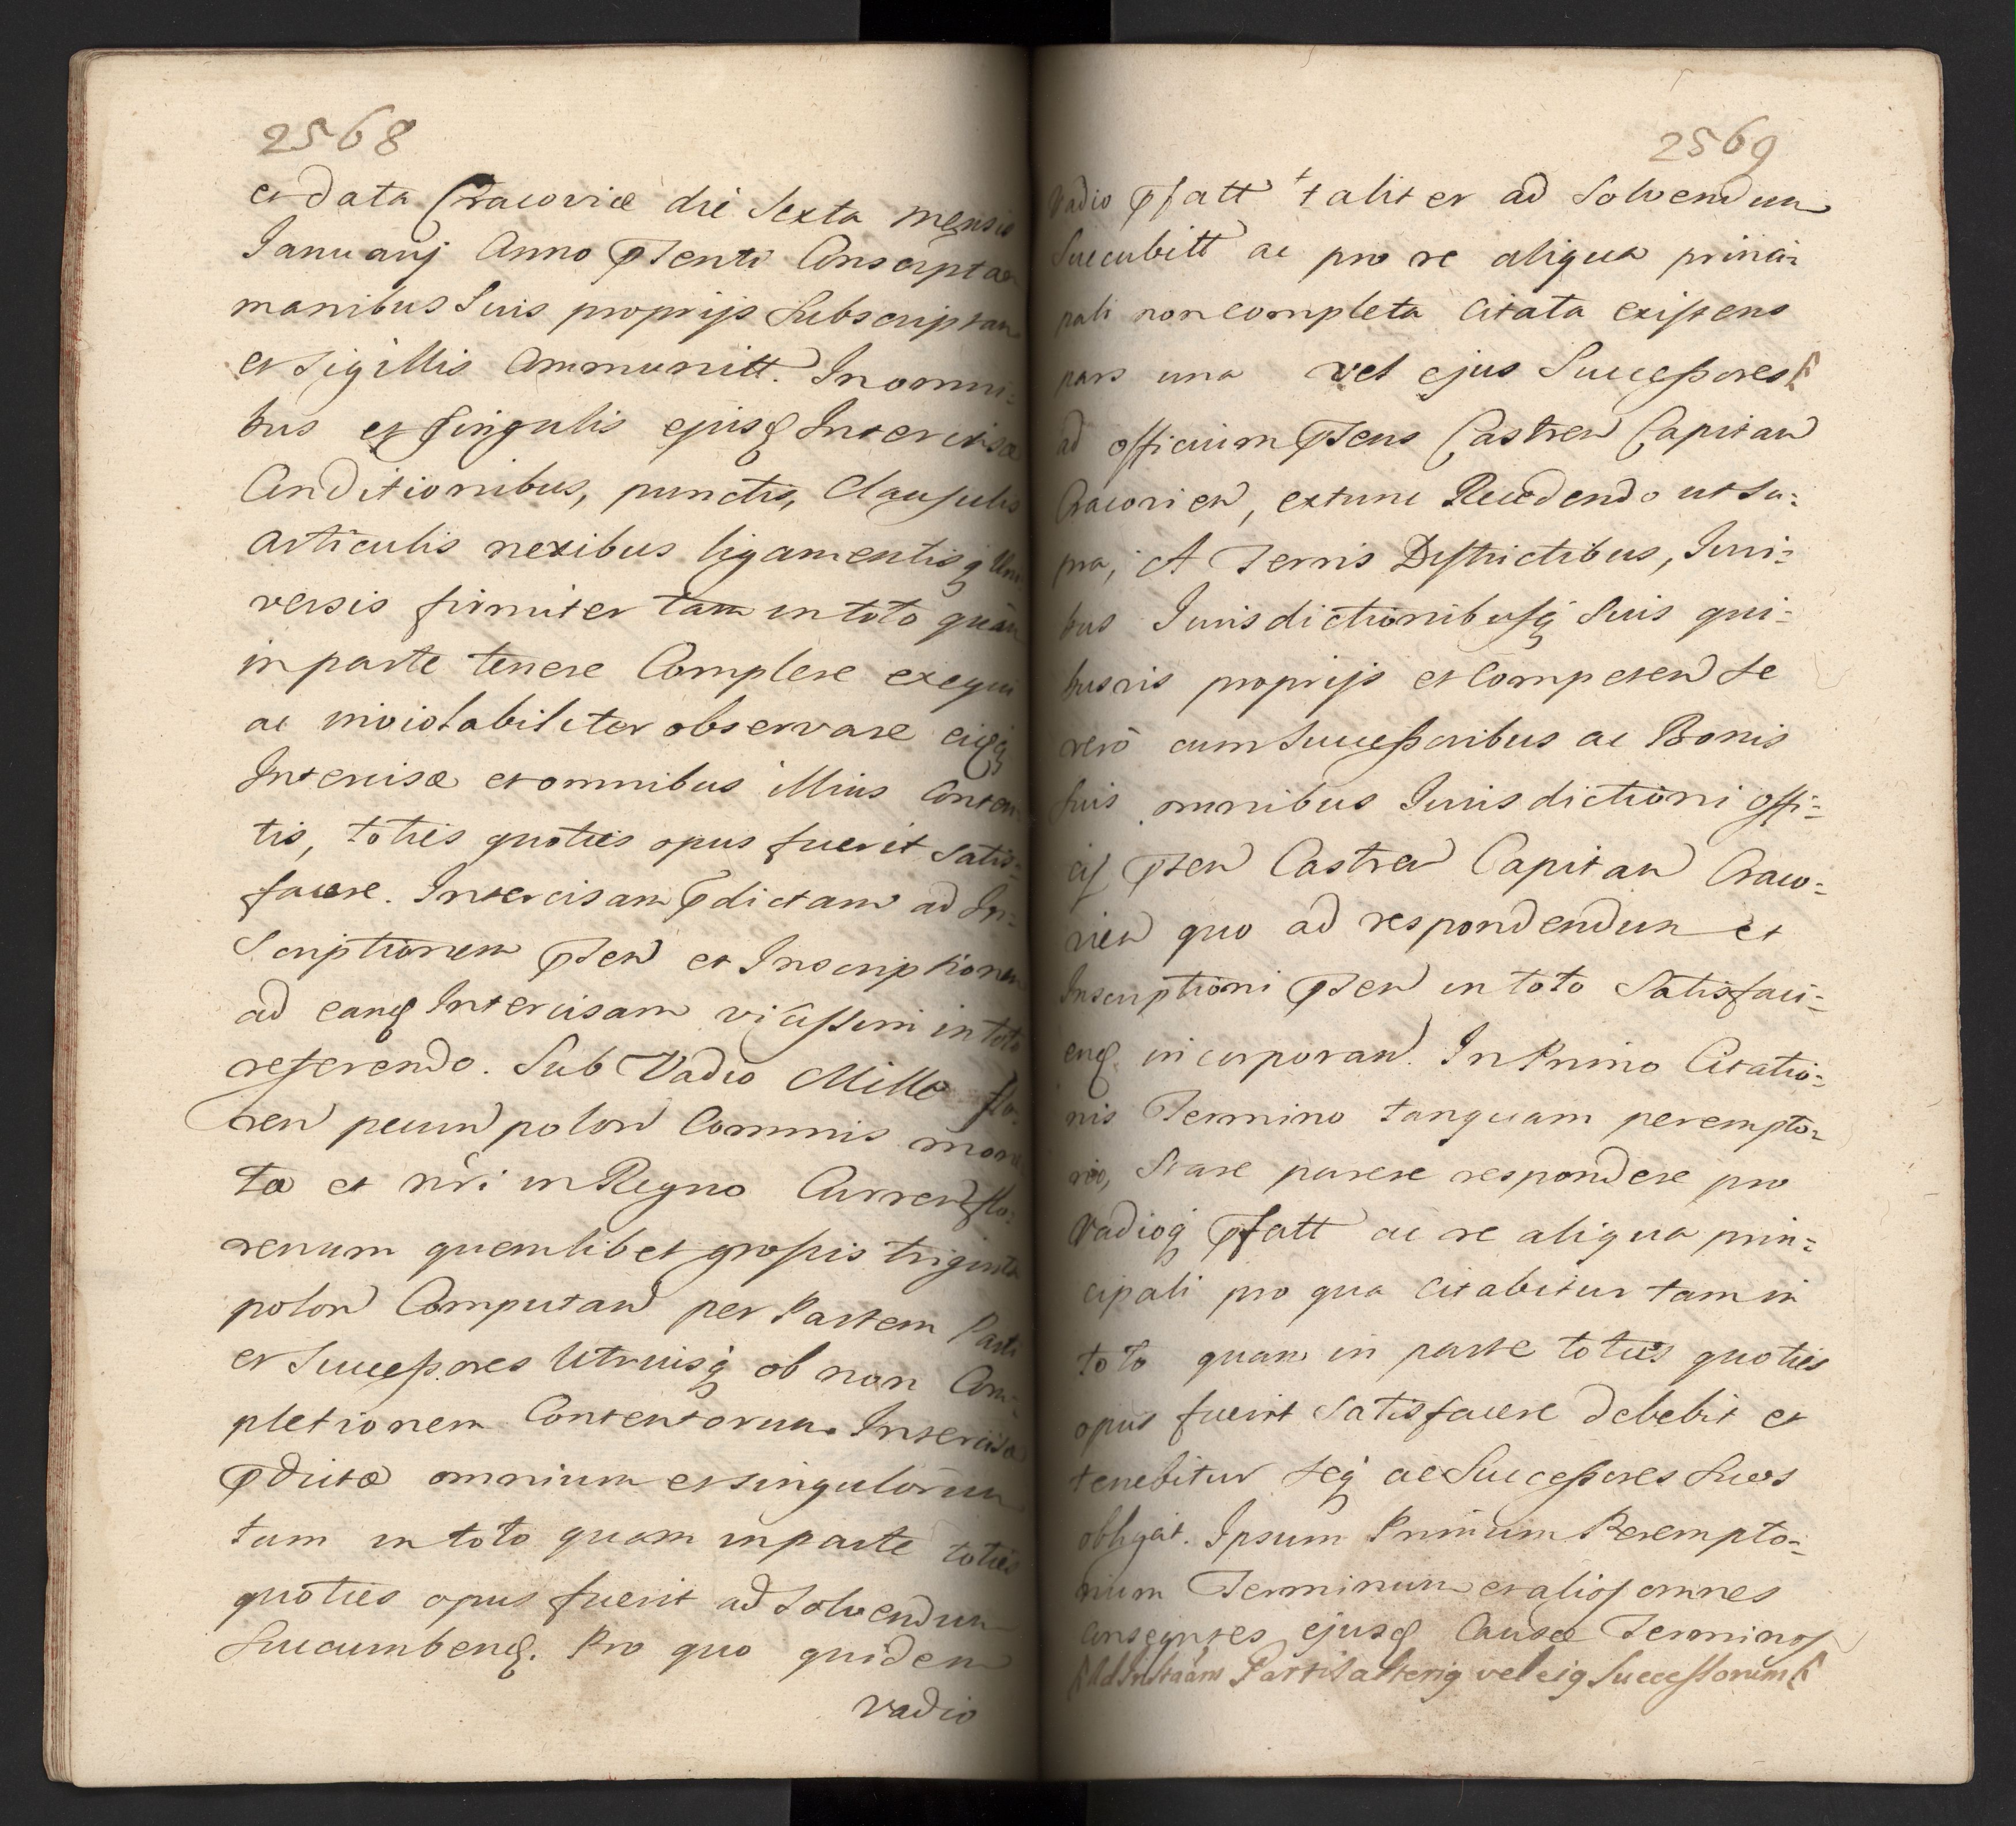 2568
et data Cracoviæ die Sexta mensis
Januarij Anno pñti Conscriptæ
manibus Suis proprijs Subscriptam
et sigillis Communitt. In omni=
bus et singulis ejusq Intercisæ
Conditionibus, punctis, Clausulis
articulis nexibus ligamentisq Uni
versis firmiter tam in toto quàm
in parte tenere Complere exequi
ac inviolabiliter observare eiq
Intercisæ et omnibus illius Conten
tis, toties quoties opus fuerit Satis=
facere. Intercisam pdictam ad In=
scriptionem pñten et Inscriptionem
ad eanq Intercisam vicissim in toto
referendo. Sub Vadio Mille flo
ren pecun polon Commis mone
tæ et nri in Regno Curren flo=
renum quemlibet grossis triginta
polon Computan per Partem Parti
et Successores Utriusq ob non Com=
pletionem Contentorum Intercisæ
pdictæ omnium et singulorum
tam in toto quam in parte toties
quoties opus fuerit ad Solvendum
Succumbenq. Pro quo quidem
vadio
2569
Vadio pfatt taliter ad Solvendum
Succubitt ac pro re aliqua princi=
pali non completa Citata existens
pars una vel ejus Successores
ad officium pñens Castren Capitan
Cracovien, extunc Recedendo ut su=
pra, A Terris Districtibus, Juri=
bus Jurisdictionibusq Suis qui=
busvis proprijs et Competen Se
verò cum Successoribus ac Bonis
Suis omnibus Jurisdictioni Offi=
cij pñten Castren Capitan Craco=
vien quo ad respondendum et
Inscriptioni pñten in toto Satisfaci=
enq incorporan. In Primo Citatio=
nis Termino tanquam perempto=
rio, Stare parere respondere pro
Vadioq pfatt ac re aliqua prin=
cipali pro qua Citabitur tam in
toto quam in parte toties quoties
opus fuerit Satisfacere debebit et
tenebitur seq ac Successores Suos
obligat. Ipsum Primum Perempto=
rium Terminum et alios omnes
Conseqntes ejusq Causæ Terminos
Ad Instaam Partis alteriq vel eiq Successorum